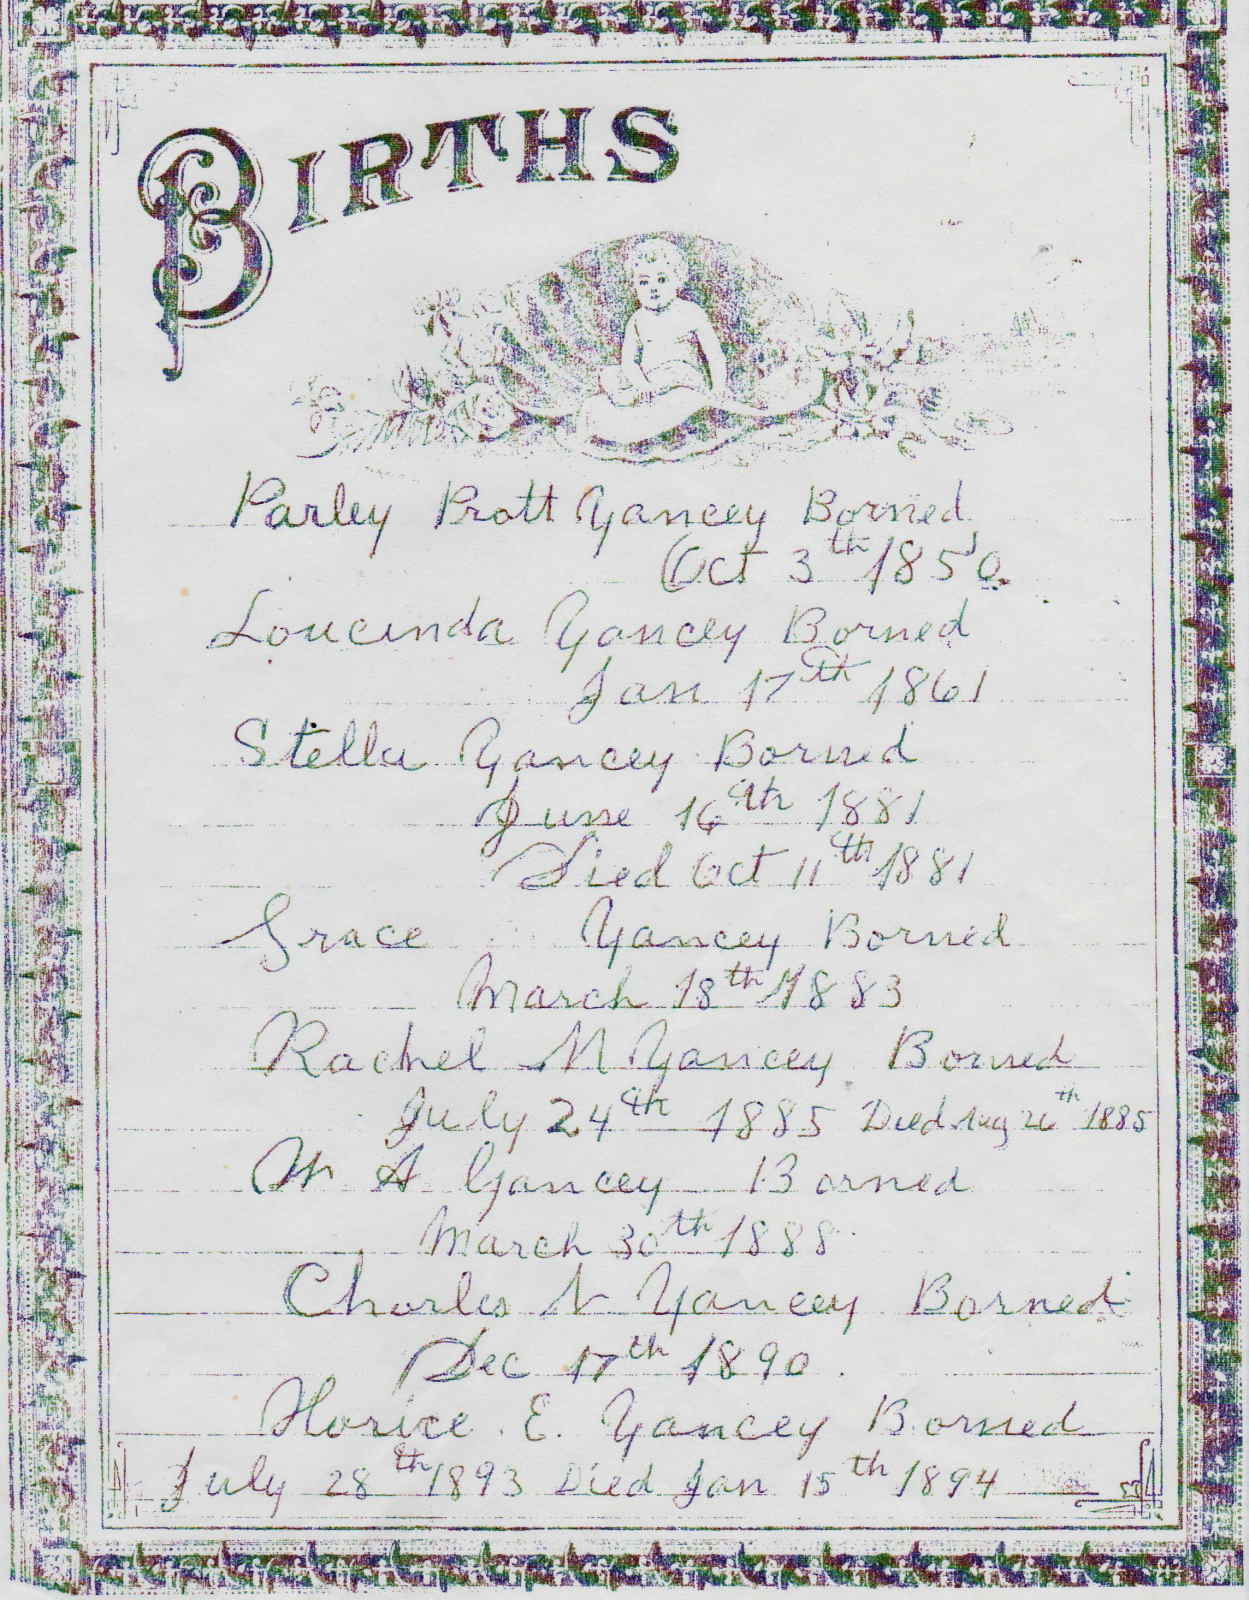 BIRTHS
Parley Pratt Yancey Borned
Oct 3th 1850
Loucinda Yancey Borned
Jan 17th 1861
Stella Yancey Borned
June 16th 1881
Died Oct 11th 1881
Grace Yancey Borned
March 18th 1883
Rachel M Yancey Borned
July 24th 1885 Died Aug 26th 1885
W A Yancey Borned
March 30th 1888
Charles N Yancey Borned
Dec 17th 1890
Horice E. Yancey Borned
July 28th 1893 Died Jan 15th 1894